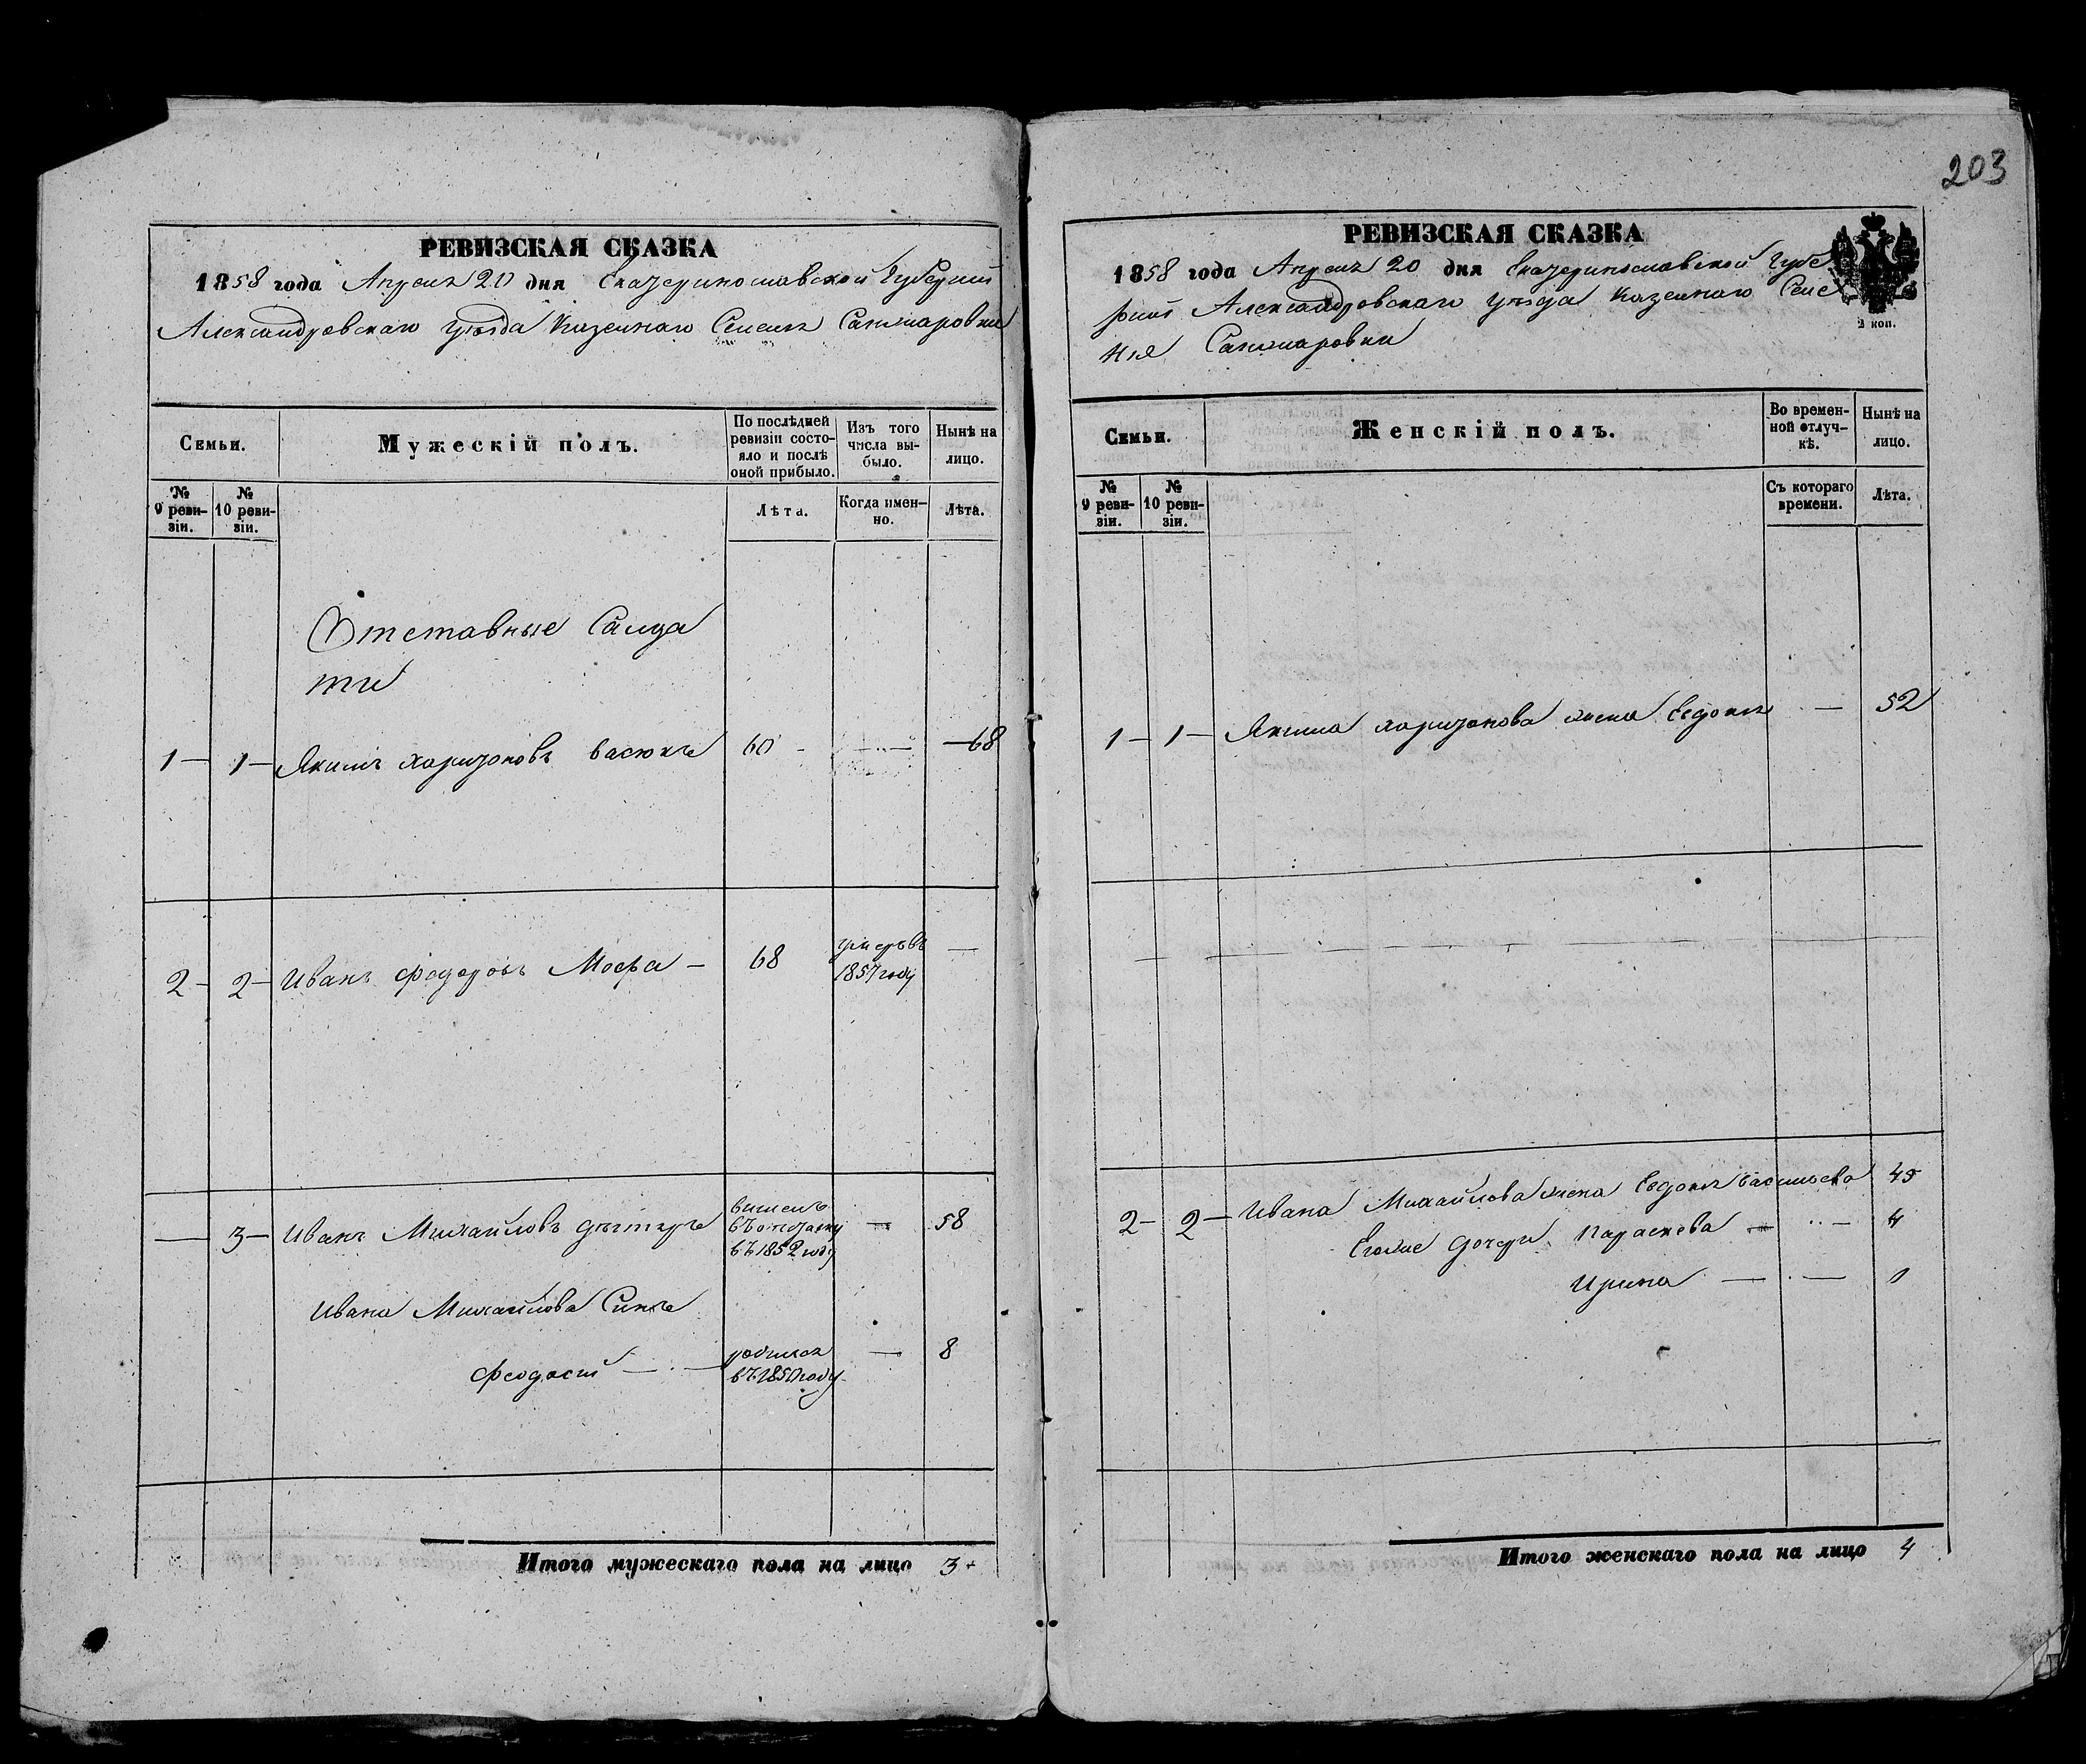 203
РЕВИЗСКАЯ СКАЗКА
1858 года Апреля 20 дня Екатеринославской Губернии
Александровскаго уѣзда Казеннаго Селенія Санжаровки
Семьи.
Мужескій полъ.
По послѣдней ревизіи состояло и послѣ оной прибыло.
Изъ того числа выбыло.
Нынѣ на лицо.
№ 9 ревизіи.
№ 10 ревизіи.
Лѣта.
Когда именно.
Лѣта.
Отставные Салда
ти
1 — 1 — Якимъ Харитоновъ Васюкъ 60 — — 68
2 — 2 — Иванъ Федоровъ Мосра — 68 умеръ въ 1857 году —
— 3 — Иванъ Михайловъ Дегтяръ въ 1852 году — 58
Ивана Михайлова Синъ
Феодосій — родился въ 1850 году — 8
Итого мужескаго пола на лицо 3
РЕВИЗСКАЯ СКАЗКА
1858 года Апреля 20 дня Екатеринославской Губе
рніи Александровскаго уѣзда Казеннаго Селе
нія Санжаровки
2 коп.
Семьи.
Женскій полъ.
Во временной отлучкѣ.
Нынѣ на лицо.
№ 9 ревизіи.
№ 10 ревизіи.
Съ котораго времени.
Лѣта.
1 — 1 — Якима Харитонова жена Евдокія — 52
2 — 2 — Ивана Михайлова жена Евдокія Васильева 45
Егоже дочери Параскева — 4
Ирина — — 1
Итого женскаго пола на лицо 4